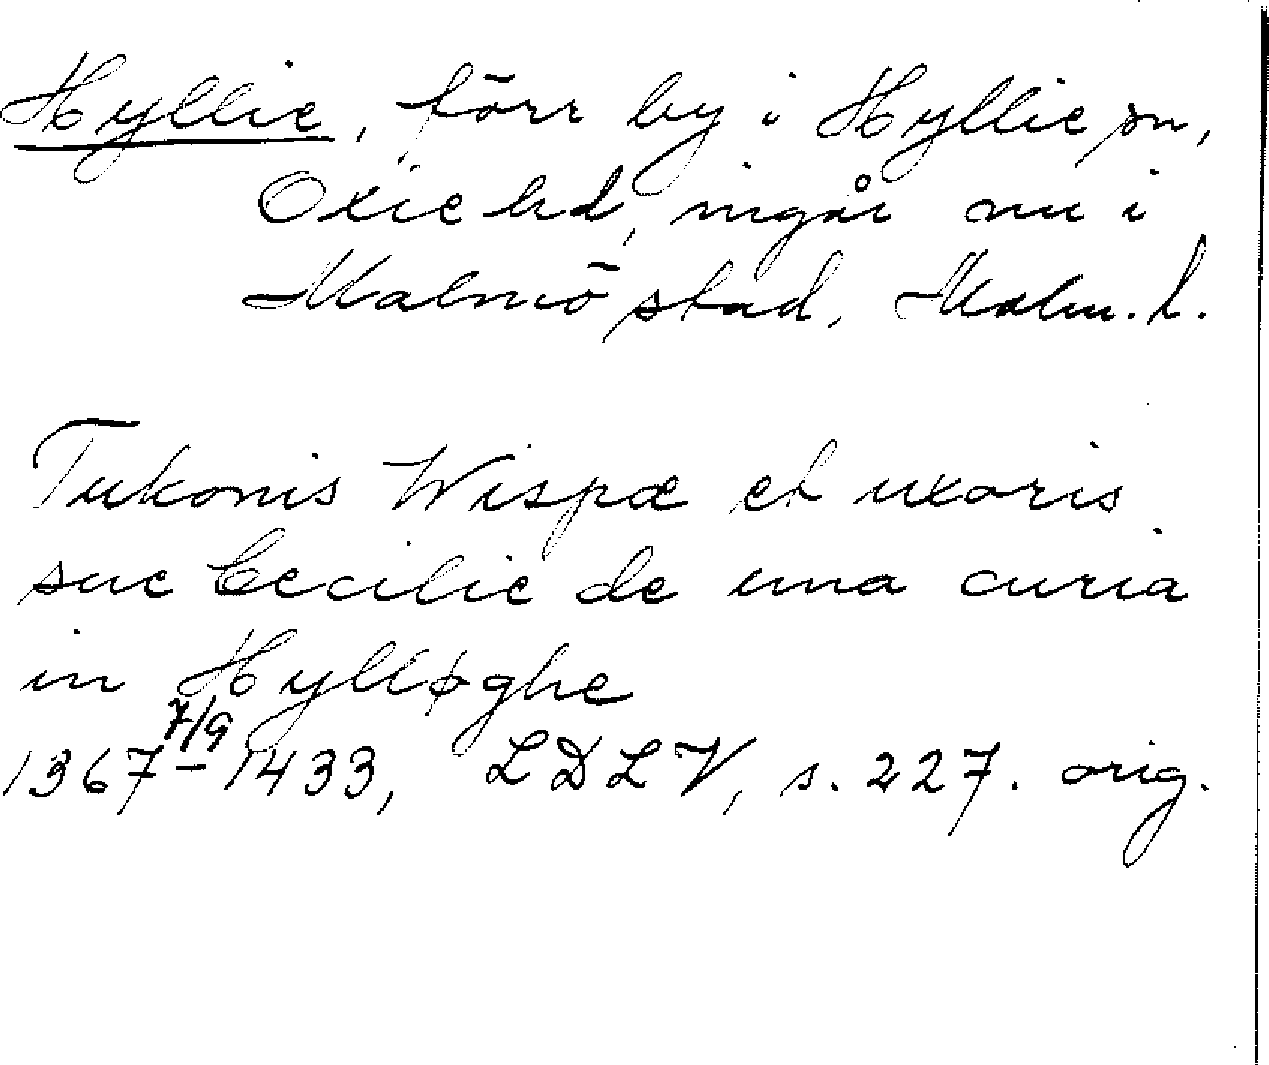 Hyllie, förr by i Hyllie sn,
Oxie hd, ingår nu i
Malmö stad, Malm. l.
Tukonis Wispæ et uxoris
sue Cecilie de una curia
in Hylløghe
7/9
1367 – 1433, LDLV, s. 227. orig.